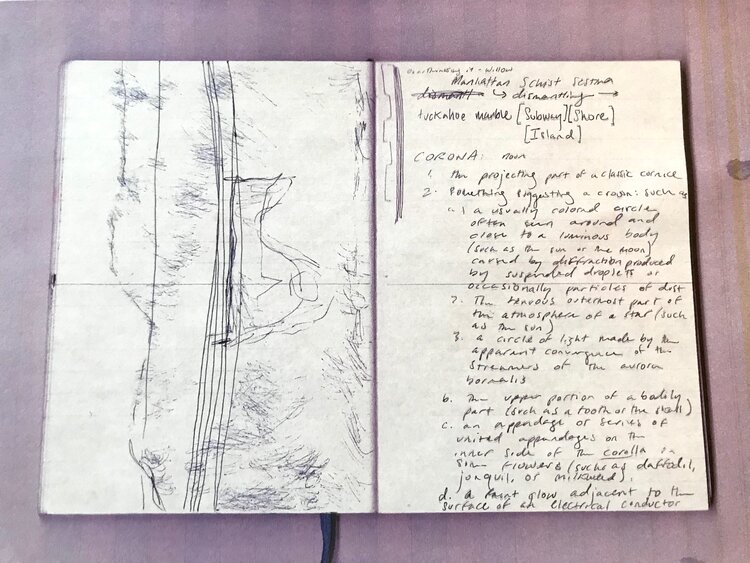 - Willow
Manhattan Schist Sestina
dismantl ↳ dismantling →
tuckahoe marble [Subway][Shore]
[Island]
CORONA: noun
1. the projecting part of a classic cornice
2. something suggesting a crown: such as
a. 1 a usually colored circle
often seen around and
close to a luminous body
(such as the sun or the moon)
caused by diffraction produced
by suspended droplets or
occasionally particles of dust
2. The tenuous outermost part of
the atmosphere of a star (such
as the sun)
3. a circle of light made by the
apparent convergence of the
streamers of the aurora
borealis
b. the upper portion of a bodily
part (such as a tooth or the skull)
c. an appendage or series of
united appendages on the
inner side of the corolla in
some flowers (such as daffodil,
jonquil, or milkweed).
d. a faint glow adjacent to the
surface of an electrical conductor